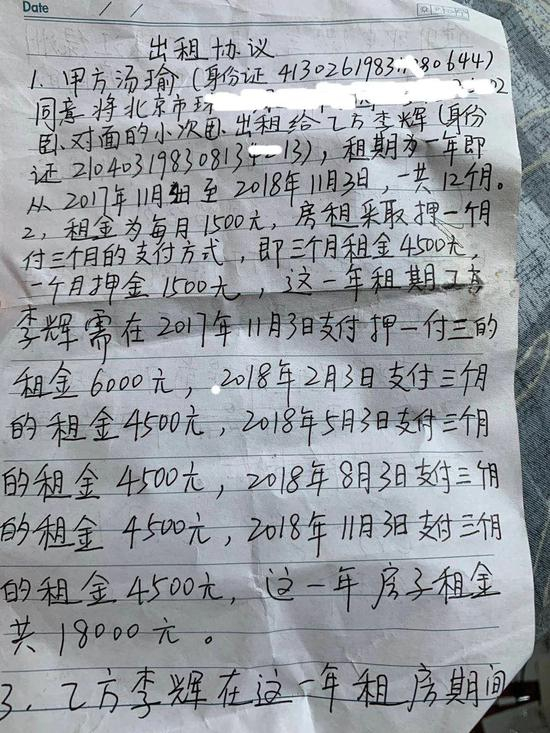 Date / /
出租协议
1. 甲方汤瑜(身份证 4130261983 080644)
同意将北京市环
卧对面的小次卧出租给乙方李辉(身份
证 210403198308134 13), 租期为一年即
从2017年11月 至2018年11月3日, 一共12个月。
2, 租金为每月1500元, 房租采取押一个月
付三个月的支付方式, 即三个月租金4500元,
一个月押金1500元, 这一年租期乙方
李辉需在2017年11月3日支付押一付三的
租金6000元, 2018年2月3日支付三个月
的租金4500元, 2018年5月3日支付三个月
的租金4500元, 2018年8月3日支付三个月
的租金4500元, 2018年11月3日支付三个月
的租金4500元, 这一年房子租金
共18000元。
3. 乙方李辉在这一年租房期间